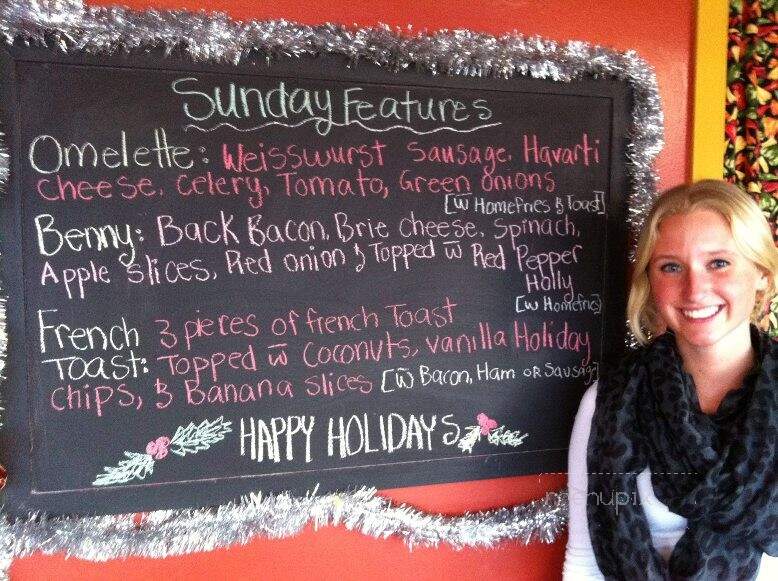 Sunday Features
Omelette: Weisswurst Sausage, Havarti
Cheese, Celery, Tomato, Green Onions
[w̅ Homefries & Toast]
Benny: Back Bacon, Brie Cheese, Spinach,
Apple Slices, Red Onion & Topped w̅ Red Pepper
Holly
[w̅ Homefries]
French 3 pieces of french Toast
Toast: Topped w̅ Coconuts, vanilla Holiday
chips, & Banana slices [w̅ Bacon, Ham or Sausage]
HAPPY HOLIDAYS
menupix